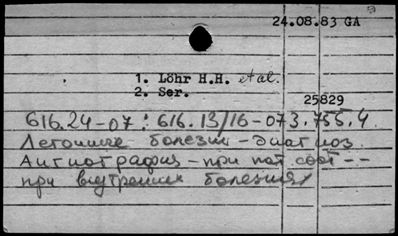 24.08.83 GA
1. Löhr H.H. et al.
2. Ser.
25829
616.24-07 : 616.13/16-073.755.4
Легочные болезни - диагноз
Ангиография - при пат сост --
при внутренних болезнях